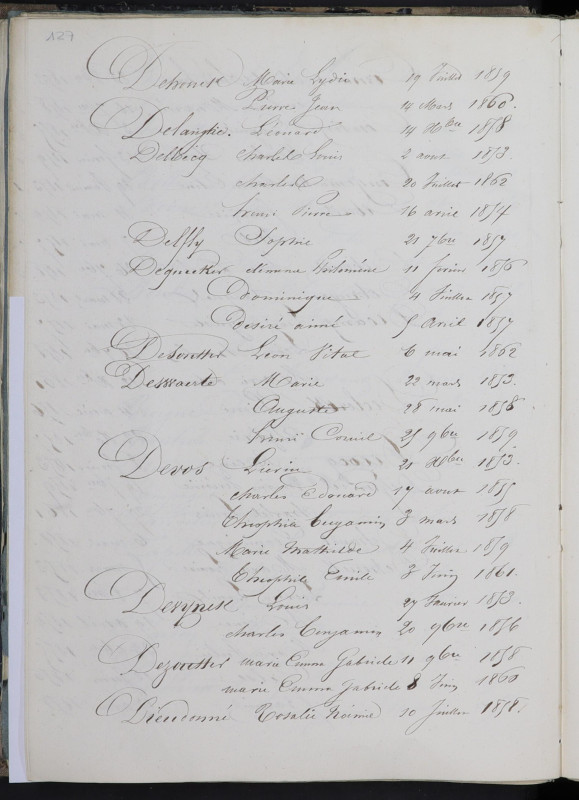 127
Dehonck Marie Lydie 19 Juillet 1859
Pierre Jean 14 Mars 1860.
Delanghe. Léonard 14 Xbre 1858
Delbecq Charles Louis 2 aout 1853.
Charles 20 Juillet 1862
henri Pierre 16 avril 1854
Delfly Sophie 21 7bre 1857
Dequecker étienne Philomène 11 fevrier 1856
Dominique 4 Juillet 1857
Desiré aimé 5 Avril 1857
Desoutter Leon Vital 6 mai 1862
Desxaerte Marie 22 mars 1853.
Auguste 28 mai 1856
henri Corneil 25 9bre 1859
Devos Lievin 21 Xbre 1853.
Charles Edouard 17 aout 1855
Théophile Benjamin 3 mars 1858
Marie Mathilde 4 Juillet 1859
Théophile Emile 3 Juin 1861.
Devynck Louis 27 Fevrier 1853.
charles Benjamin 20 9bre 1856
Dezoutter marie Emma Gabriele 11 9bre 1858
marie Emma Gabriele 8 Juin 1860
Dieudonné Rosalie Noémie 10 Juillet 1858.